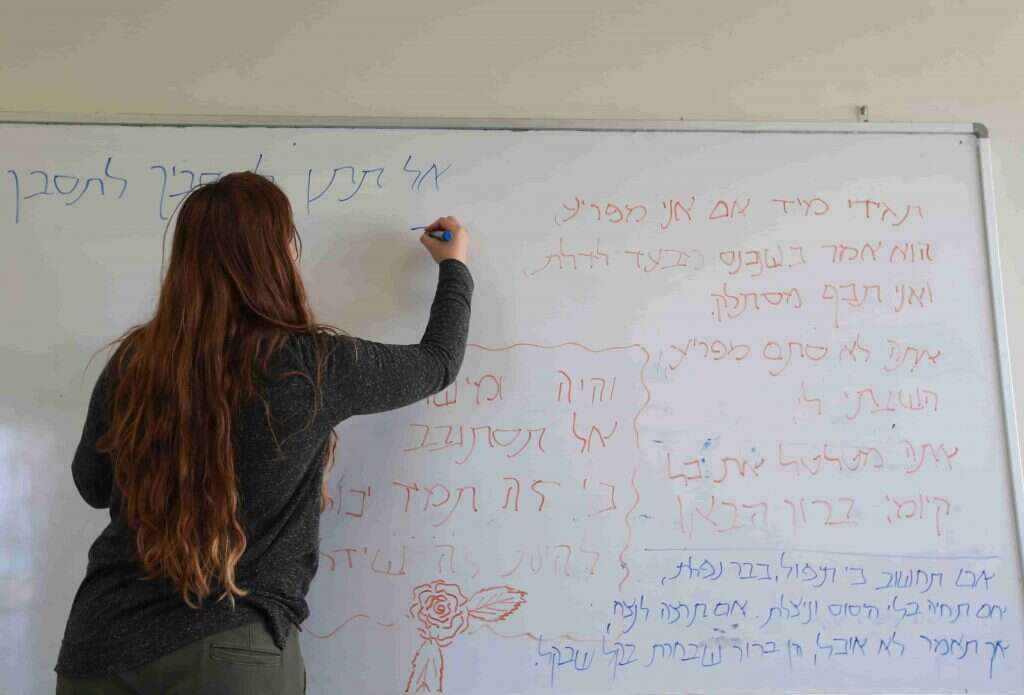 אל תתן לתסבך
תגידי מיד אם אני מפריע,
הוא אמר כשנכנס מבעד לדלת,
ואני תכף מסתלק.
אתה לא סתם מפריע,
השבתי לו
אתה מטלטל את כל
קיומי. ברוך הבא
והיה
אל תסתובב
כי זה תמיד
זה
אם תחשוב כי תיפול, כבר נפלת,
אם תחיה בלי היסוס וניצלת. אם תרצה לנצח,
אך תאמר לא אוכל, הן ברור שבחרת בקל שבקל.